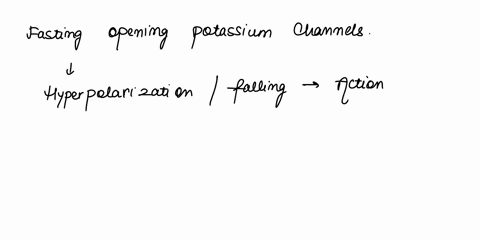 Fasting opening potassium Channels.
↓
Hyperpolarization / falling → Action